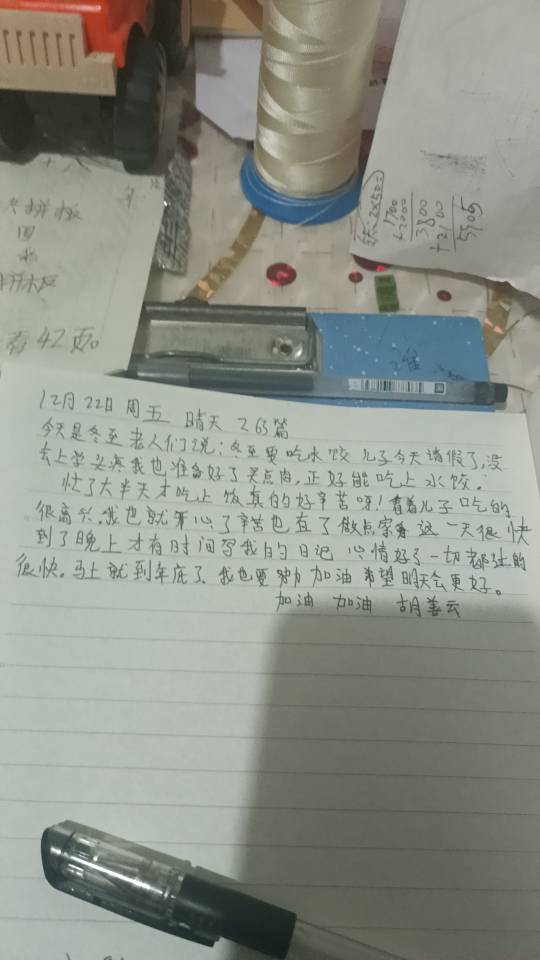 拼板
回
来
拼板
看42页。
2x50=
1700
+2000
3800
+2100
5905
12月22日 周五 晴天 265篇
今天是冬至老人们说:冬至要吃水饺 儿子今天请假了,没
去上学头疼我也准备好了买点肉,正好能吃上水饺.
忙了大半天才吃上饭真的好辛苦呀!看着儿子吃的
很高兴.我也就开心了辛苦也直了做点家务这一天很快
到了晚上才有时间写我的日记 心情好了一切都过的
很快.马上就到年底了.我也要努力加油希望明天会更好。
加油 加油 胡善云